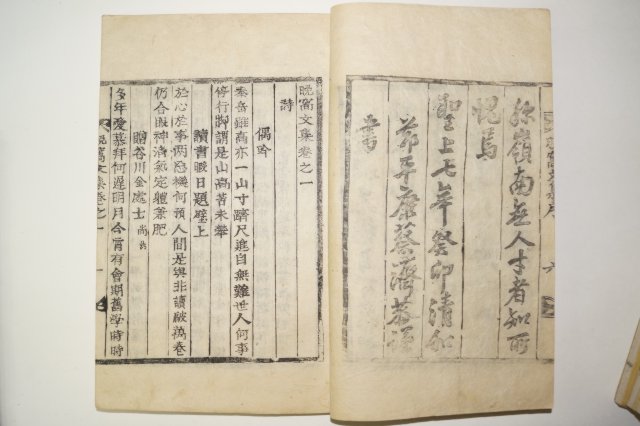 嶺南無人才者知所
愧焉
聖上七年癸卯清和
節平康蔡濟恭謹
書
晩窩文集卷之一
詩
偶吟
泰岳雖高亦一山寸躋尺進自無難世人何事
停行脚謂是山高苦未攀
讀書暇日題壁上
於心於事兩忘機何預人間是與非讀破萬卷
仍合眼神清氣定軆兼肥
贈谷川金處士尙
多年愛慕拜何遲明月今宵有會期舊學時時
晩窩文集卷之一